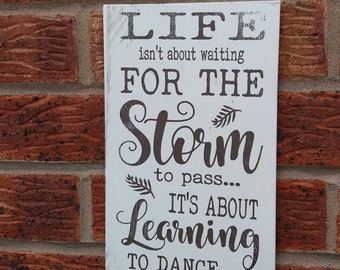 LIFE
isn't about waiting
FOR THE
Storm
to pass...
IT'S ABOUT
Learning
TO DANCE